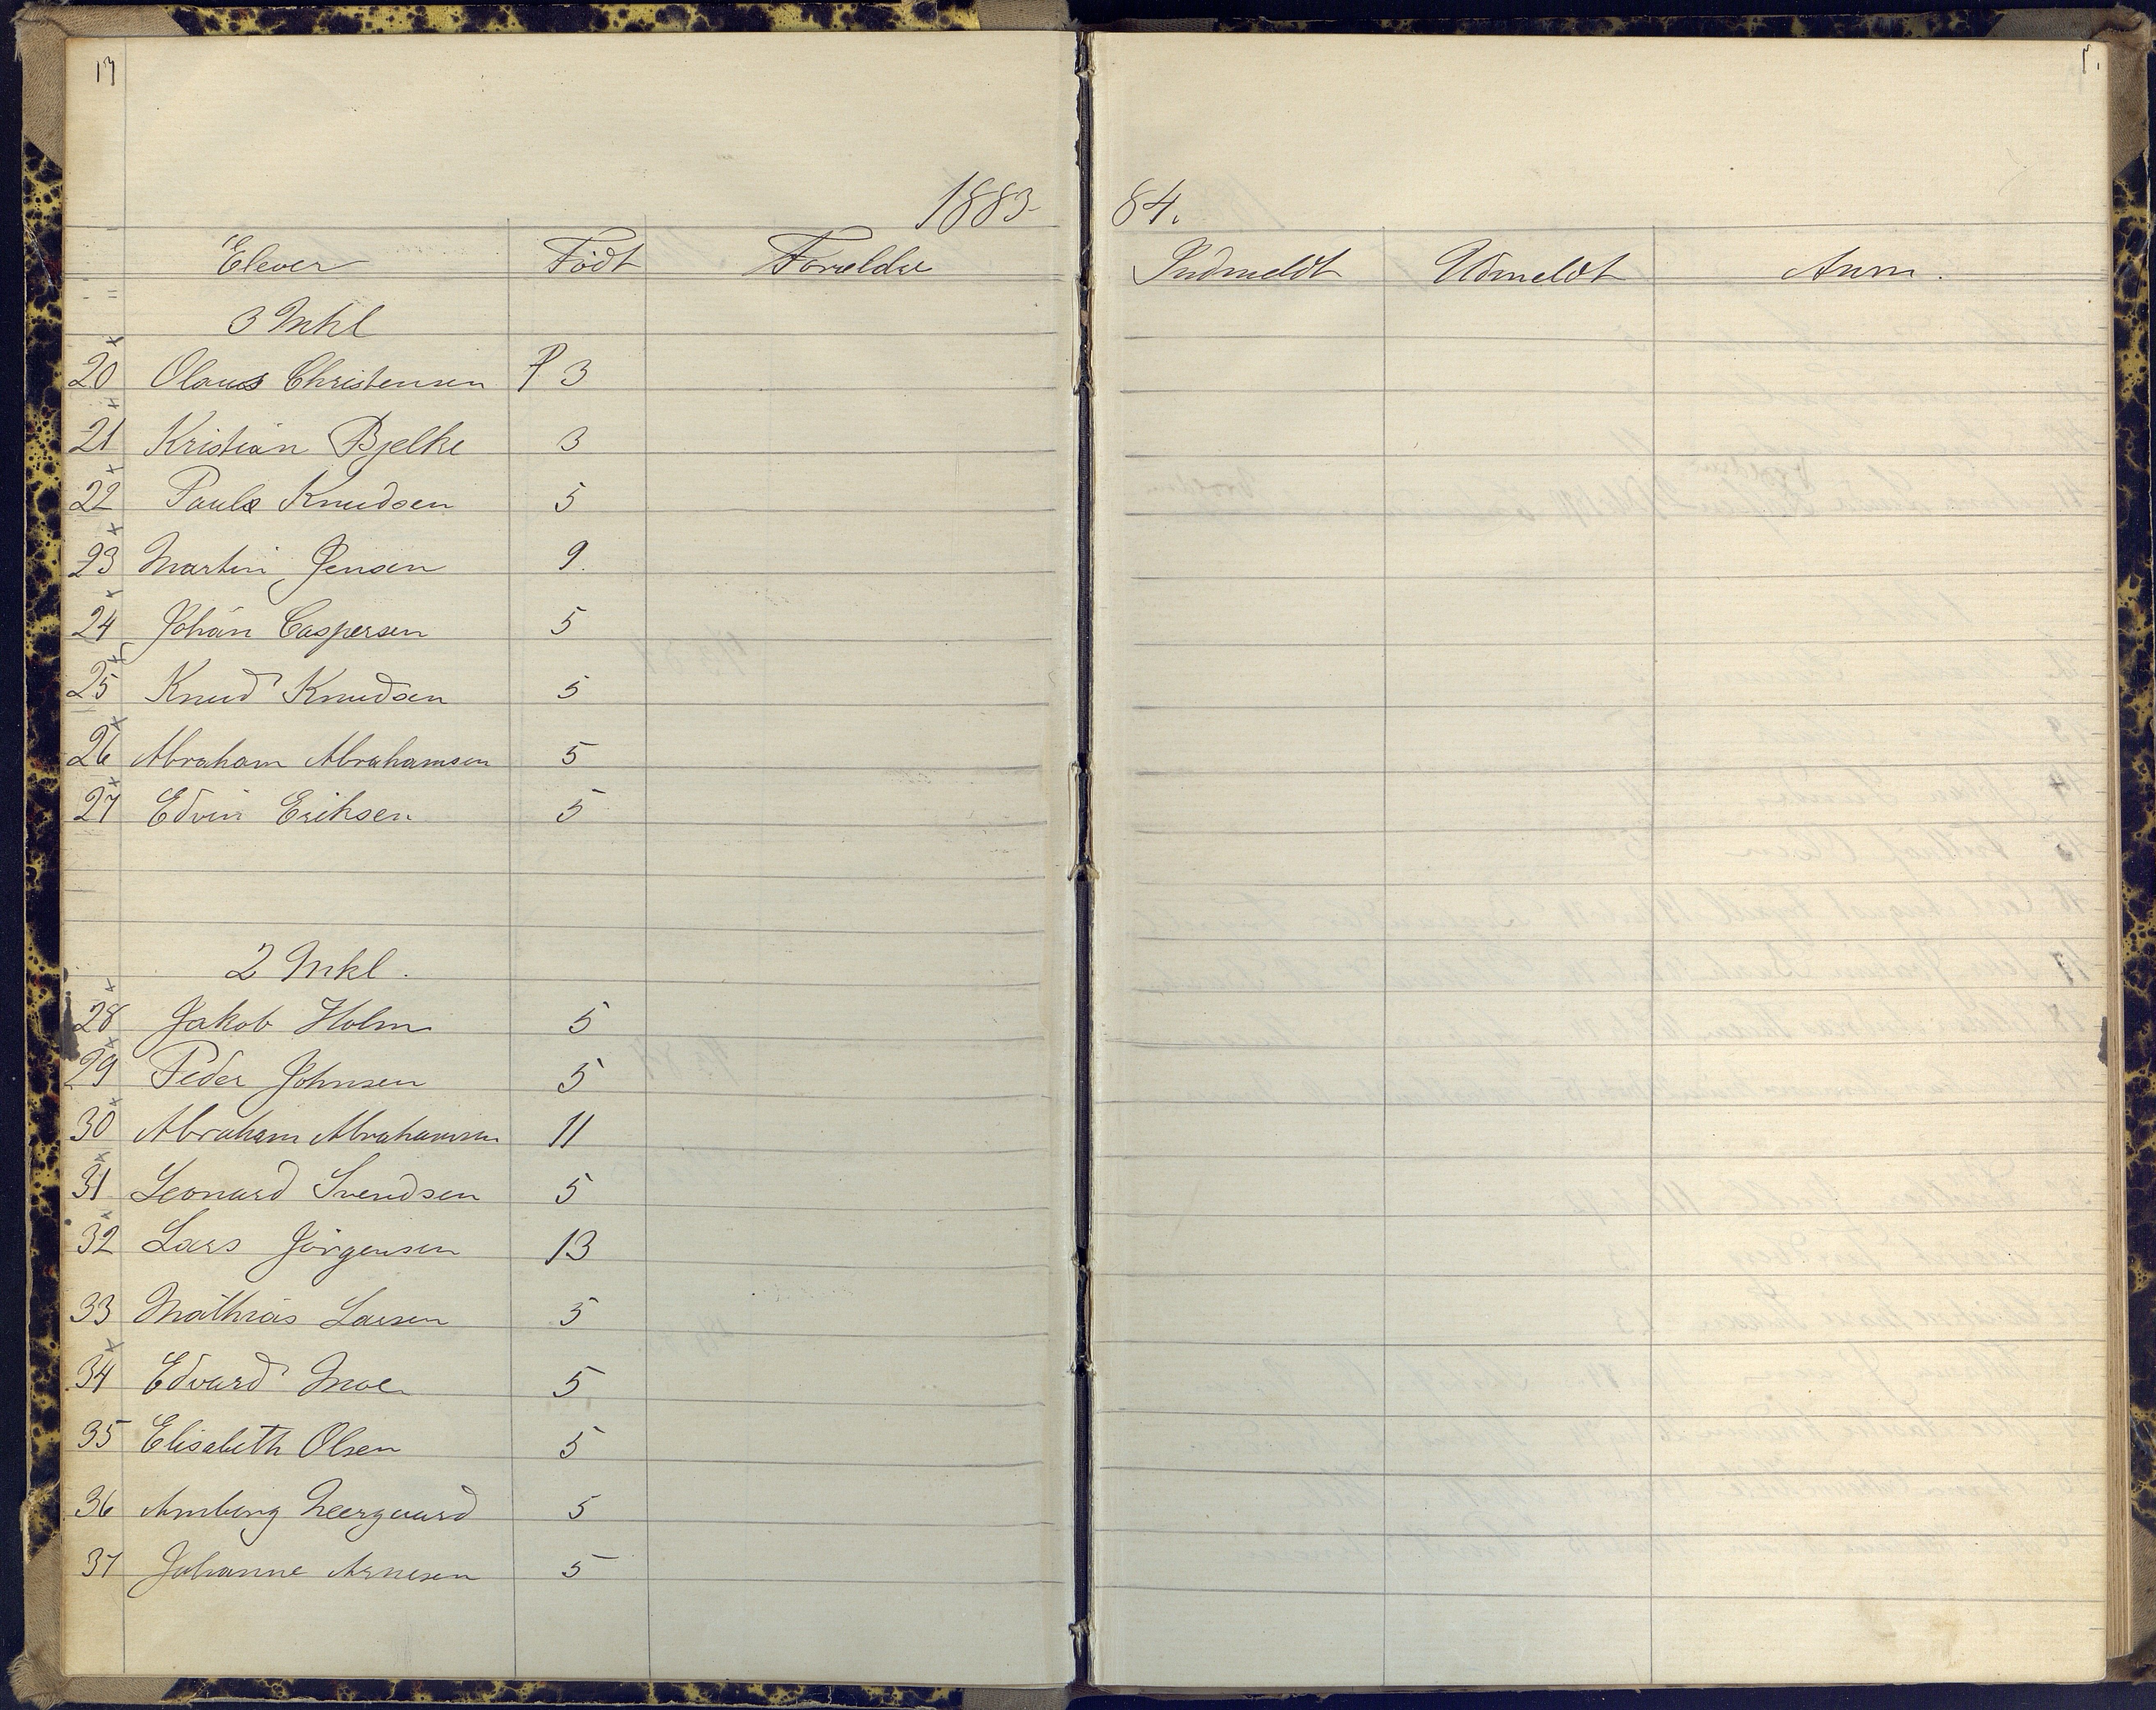 1883-84.
Elever Födt Forældre Indmeldt Udmeldt Anm.
3 Mkl
20 Olaus Christensen P 3
21 Kristian Bjelke 3
22 Paule Knudsen 5
23 Martin Jensen 9.
24 Johan Caspersen 5
25 Knud Knudsen 5
26 Abraham Abrahamsen 5
27 Edvin Eriksen 5
2 Mkl.
28 Jakob Holm 5
29 Peder Johnsen 5
30 Abraham Abrahamsen 11
31 Leonard Svendsen 5
32 Lars Jörgensen 13
33 Mathias Larsen 5
34 Edvard Moe 5
35 Elisabeth Olsen 5
36 Amberg Neergaard 5
37 Johanne Arnesen 5